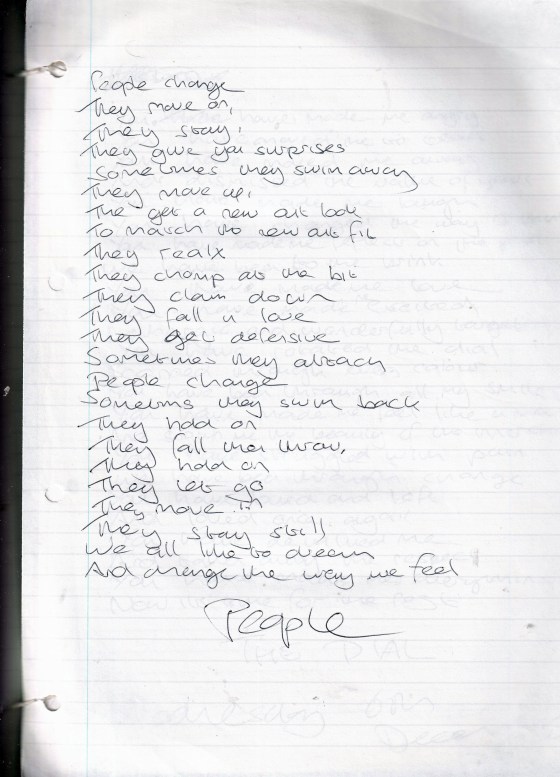 People change
They move on,
They stay,
They give you surprises
Sometimes they swim away
They move up,
The get a new out look
To match the new out fit
They realx
They chomp at the bit
They clam down
They fall in love
They get defensive
Sometimes they attack
People change
Sometims they swim back
They hold on
They fall
They hold on
They let go
They move in
They stay still
We all like to dream
And change the way we feel
People